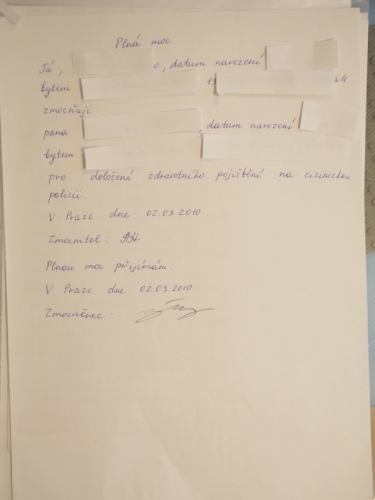 Plná moc
Já, o, datum narození
bytem 13 24
zmocňuji
pana , datum narození
bytem
pro doložení zdravotního pojištění na cizineckou
policii.
V Praze dne 02.03.2010
Zmocnitel:
Plnou moc přijímám.
V Praze dne 02.03.2010
Zmocněnec: